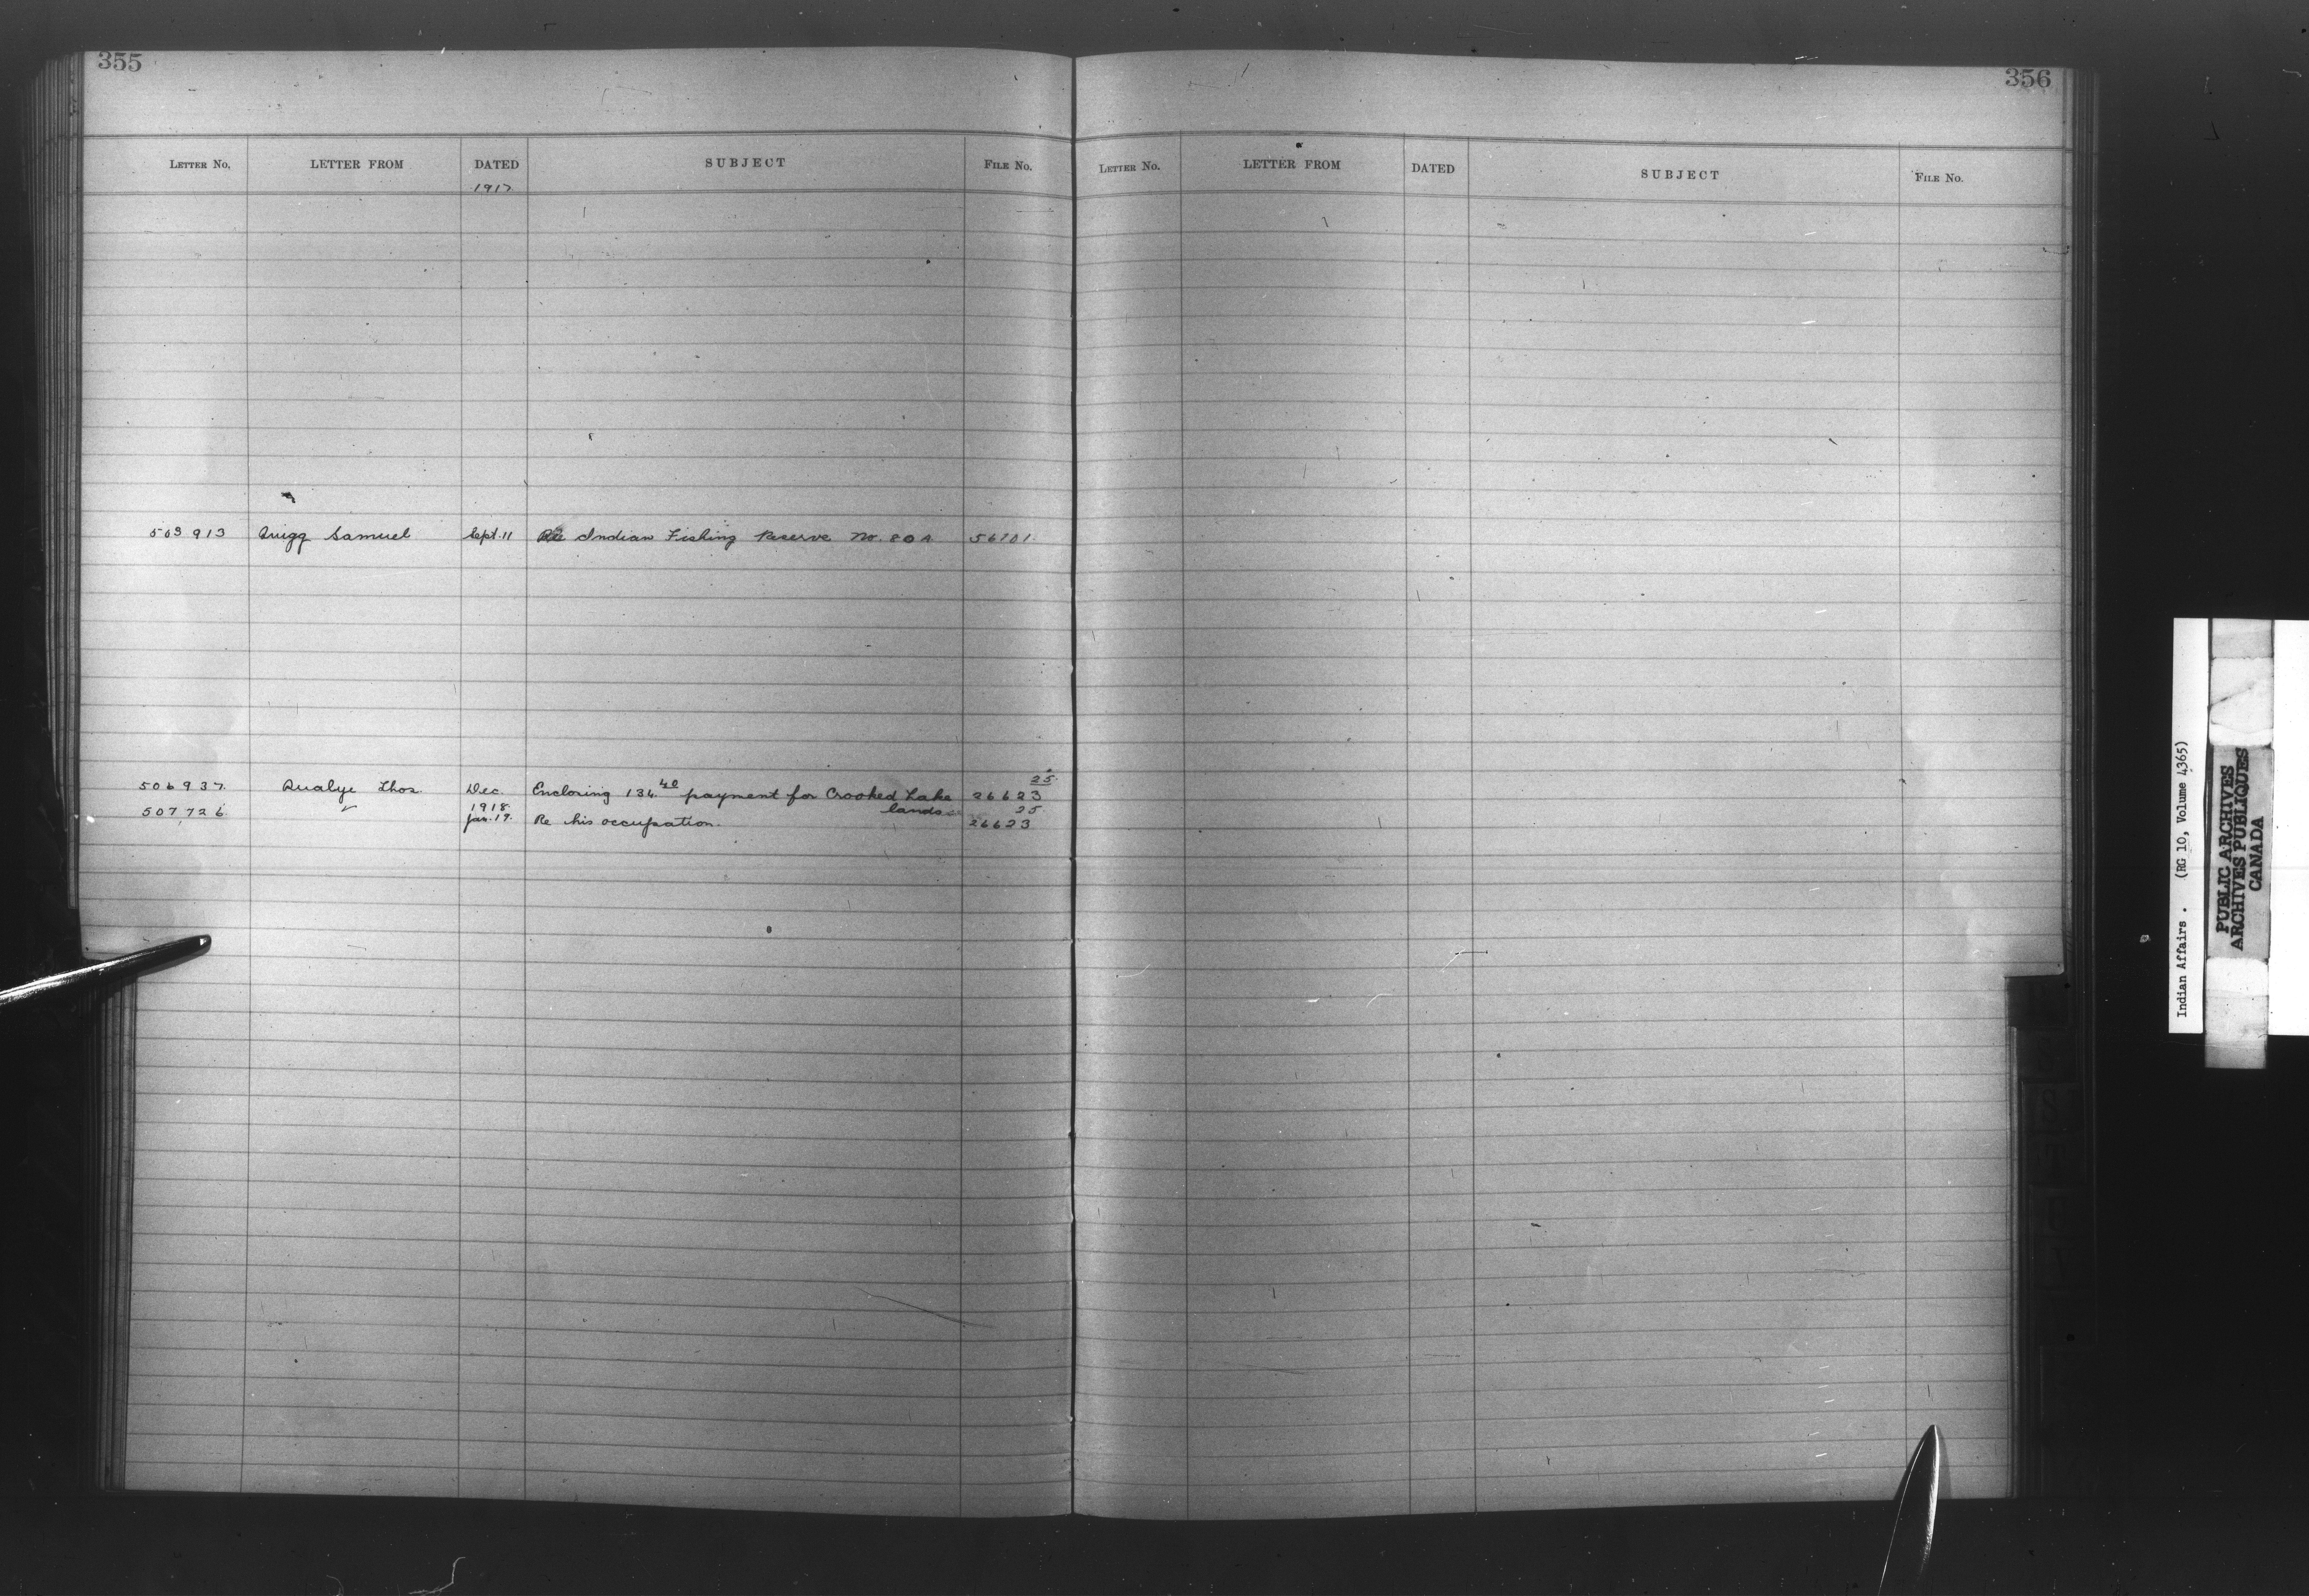 355
LETTER NO. LETTER FROM DATED SUBJECT FILE NO.
1917
503913 Quigg Samuel Sept. 11 Re Indian Fishing Reserve No. 80A 56101
25
506937 Qualye Thos. Dec. Enclosing 134.40 payment for Crooked Lake 26623
1918 lands 25
507726 " Jan. 19. Re his occupation. 26623
356
LETTER NO. LETTER FROM DATED SUBJECT FILE NO.
Indian Affairs. (RG 10, Volume 4365)
PUBLIC ARCHIVES
ARCHIVES PUBLIQUES
CANADA